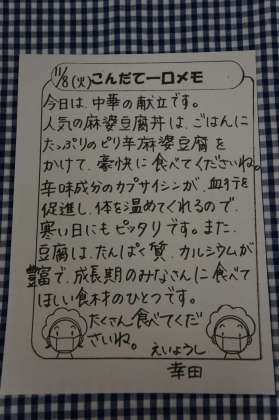 11/8(火)こんだて一口メモ
今日は、中華の献立です。
人気の麻婆豆腐丼は、ごはんに
たっぷりのピリ辛麻婆豆腐を
かけて、豪快に食べてくださいね。
辛味成分のカプサイシンが、血行を
促進し、体を温めてくれるので、
寒い日にもピッタリです。また、
豆腐は、たんぱく質、カルシウムが
豊富で、成長期のみなさんに食べて
ほしい食材のひとつです。
たくさん食べてくだ
さいね。
えいようし
幸田